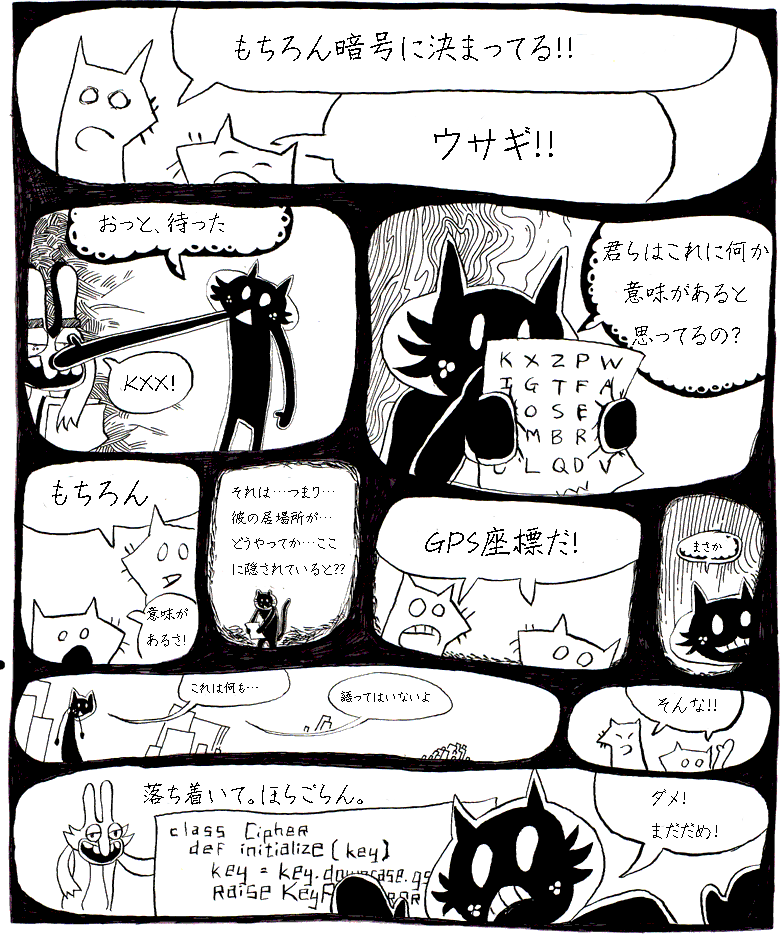 もちろん暗号に決まってる!!
ウサギ!!
おっと、待った
KXX!
君らはこれに何か
意味があると
思ってるの?
K X Z P W
I G T F A
O S E
M B R
L Q D V
もちろん
意味が
あるさ!
それは…つまり…
彼の居場所が…
どうやってか…ここ
に隠されていると??
GPS座標だ!
まさか
これは何も…
語ってはいないよ
そんな!!
落ち着いて。ほらごらん。
class Cipher
def initialize(key)
key = key.downcase.gs
raise Key
ダメ!
まだだめ!